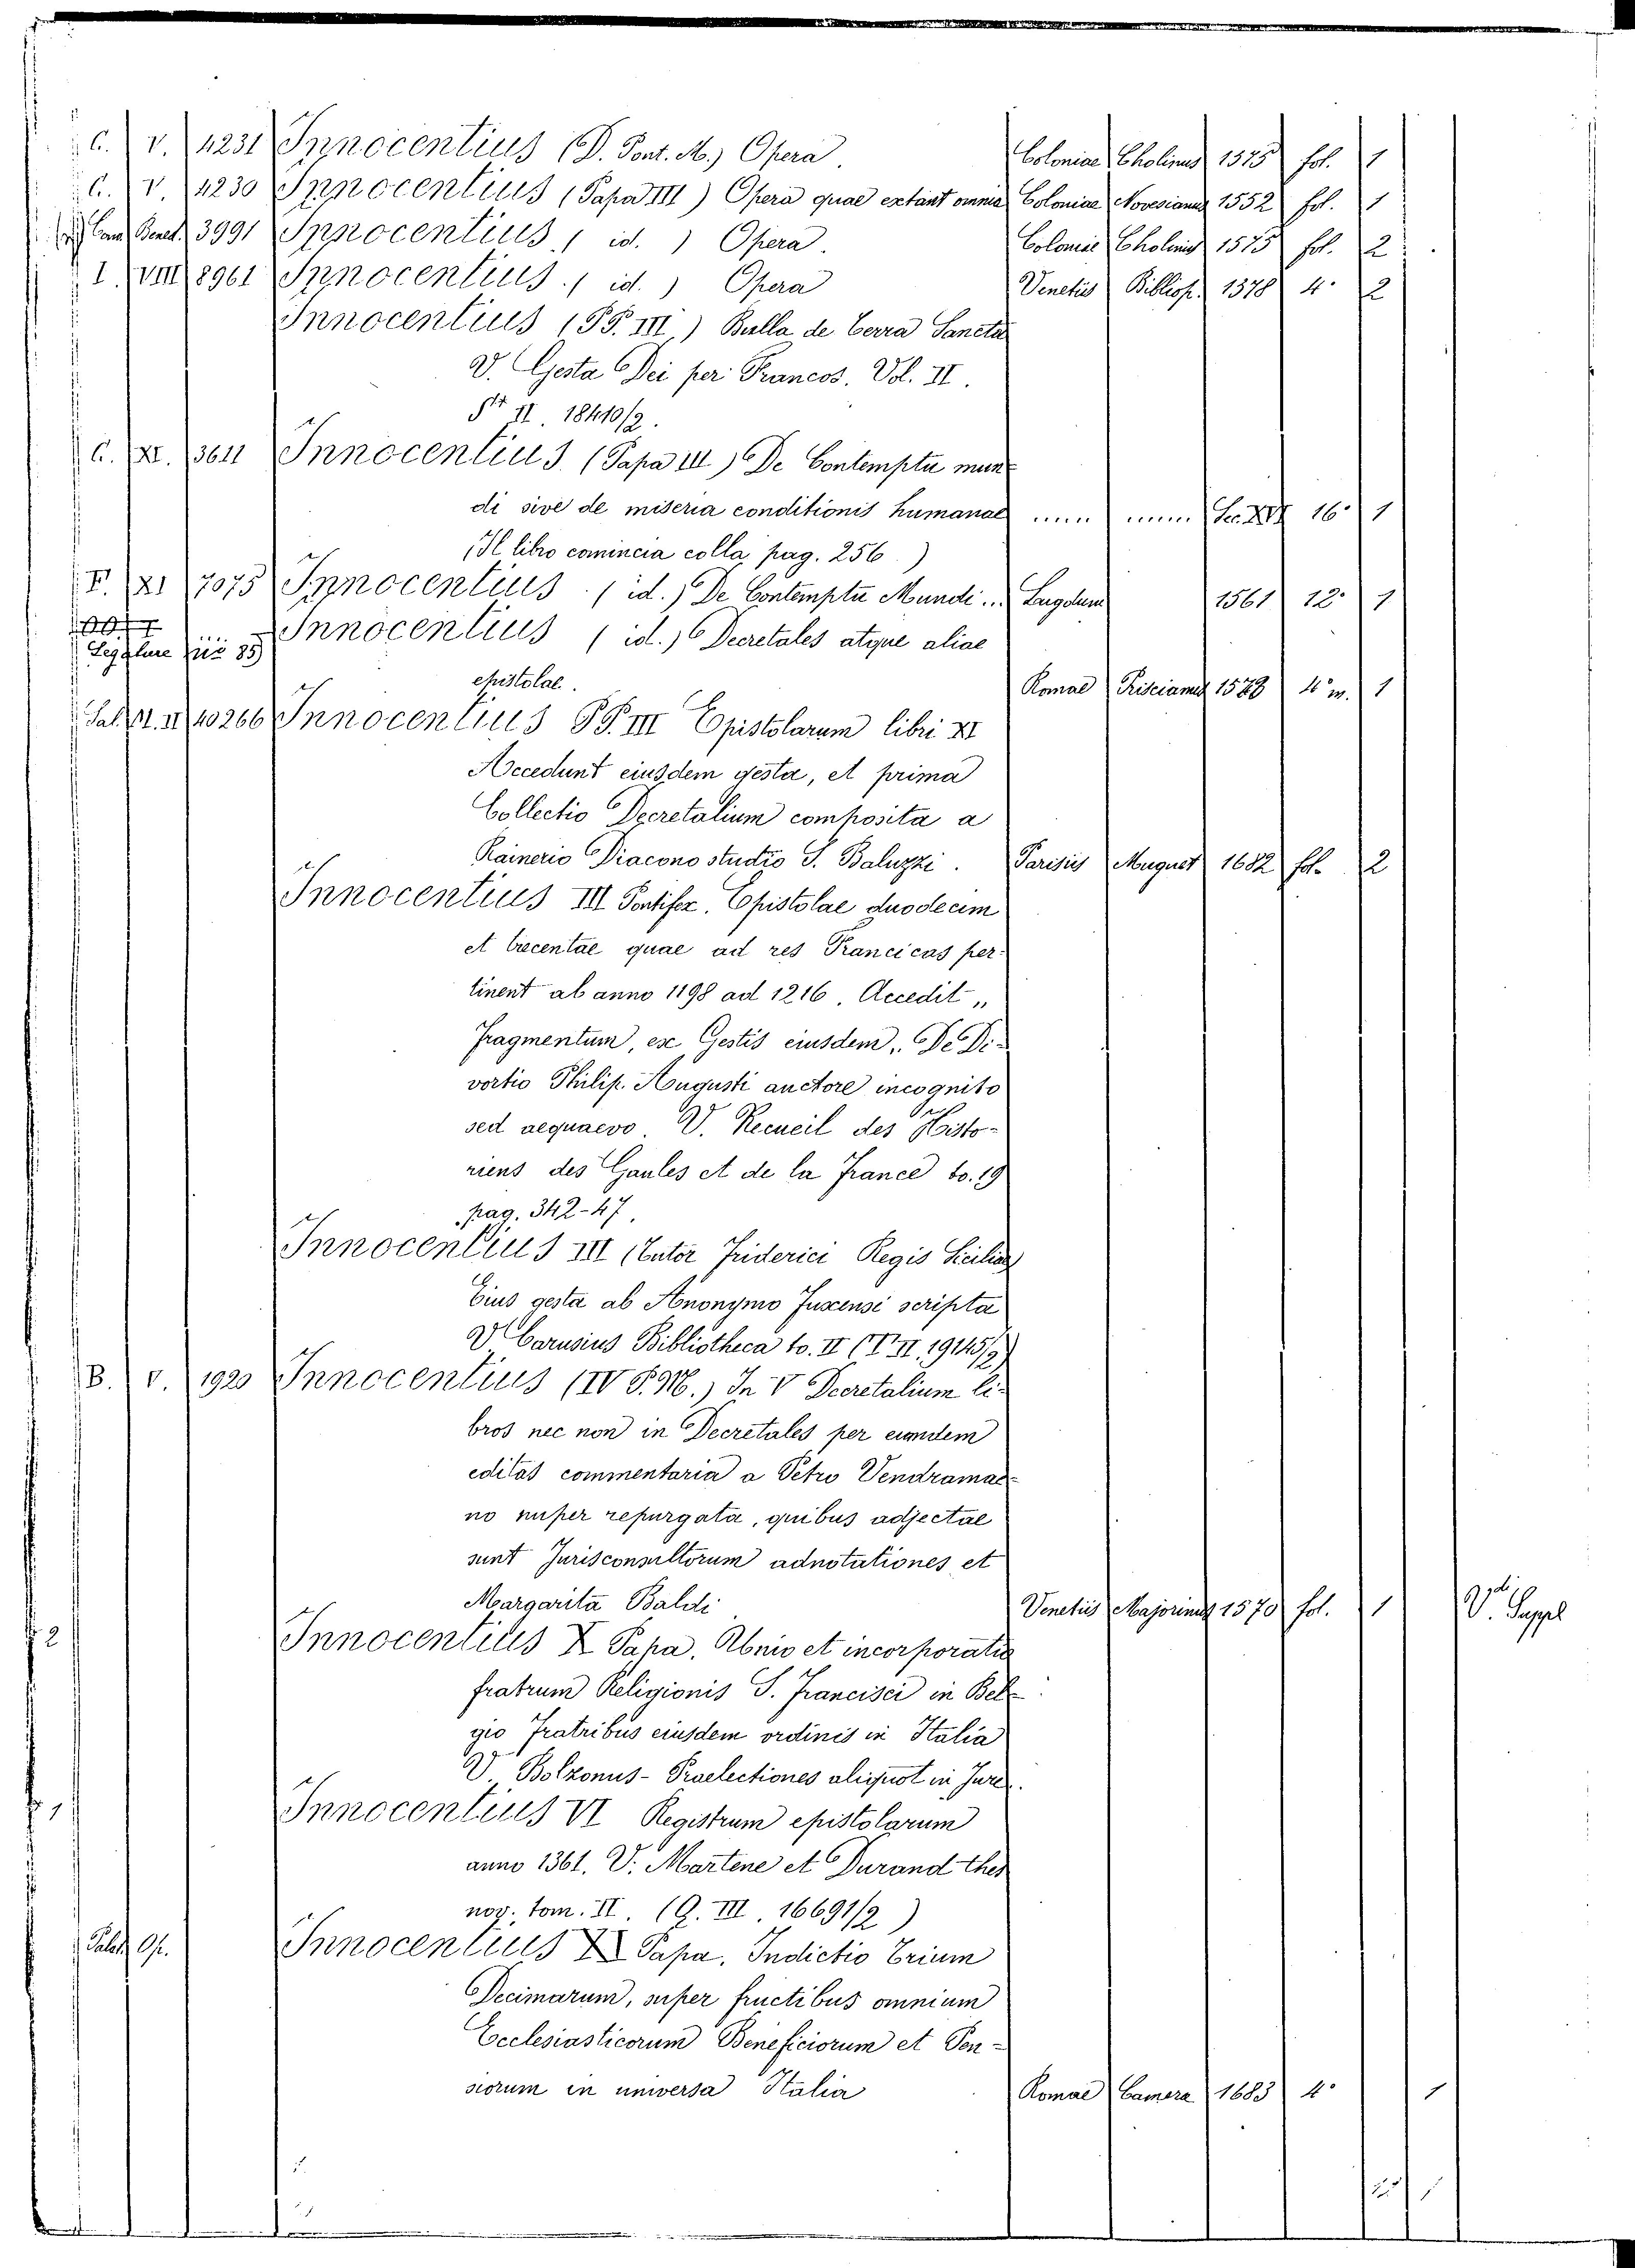 C. V. 4231 Innocentius (D. Pont. M.) Opera. Coloniae Cholinus 1575 fol. 1
C. V. 4230 Innocentius (Papa III) Opera quae extant omnia Coloniae Novesianus 1552 fol. 1
Cam. Bened. 3991 Innocentius (id.) Opera. Coloniae Cholinus 1575 fol. 2
I. VIII 8961 Innocentius (id.) Opera Venetiis Bibliop. 1578 4° 2
Innocentius (PP. III) Bulla de Terra Sancta
V. Gesta Dei per Francos. Vol. II.
II. 18410/2.
C. XI. 3611 Innocentius (Papa III) De Contemptu mun-
di sive de miseria conditionis humanae ...... ...... Sec. XVI 16° 1
(Il libro comincia colla pag. 256.)
F. XI 7075 Innocentius (id.) De Contemptu Mundi... Lugdum 1561 12° 1
Innocentius (id.) Decretales atque aliae
Legature 85
epistolae. Romae Priscianus 1543 4° m. 1
Sal. Pl. II 40266 Innocentius PP. III Epistolarum libri XI
Accedunt eiusdem gesta, et prima
Collectio Decretalium composita a
Rainerio Diacono studio S. Baluzzi. Parisiis Muguet 1682 fol. 2
Innocentius III Pontifex. Epistolae duodecim
et trecentae quae ad res Francicas per-
tinent ab anno 1198 ad 1216. Accedit „
Fragmentum, ex Gestis eiusdem „ De Di-
vortio Philip. Augusti auctore incognito
sed aequaevo. V. Recueil des Histo-
riens des Gaules et de la France to. 19
pag. 342-47.
Innocentius III (Tutor Friderici Regis Siciliae
Eius gesta ab Anonymo Fuxensi scripta
V. Carusius Bibliotheca to. II (T. II. 19145/2)
B. V. 1920 Innocentius (IV P. M.) In V Decretalium li-
bros nec non in Decretales per eumdem
editas commentaria a Petro Vendramae-
no nuper repurgata, quibus adjectae
sunt Jurisconsultorum adnotationes et
Margarita Baldi Venetiis Majorinus 1570 fol. 1 V. Suppl
2 Innocentius X Papa. Unio et incorporatio
fratrum Religionis S. Francisci in Bel-
gio Fratribus eiusdem ordinis in Italia
V. Bolzonus - Praelectiones aliquot in Jure.
1 Innocentius VI Registrum epistolarum
anno 1361. V. Martene et Durand thes
nov. tom. II. (Q. III. 16691/2)
Palch Op. Innocentius XI Papa. Indictio trium
Decimarum, super fructibus omnium
Ecclesiasticorum Beneficiorum et Pen-
siorum in universa Italia Romae Camera 1683 4° 1